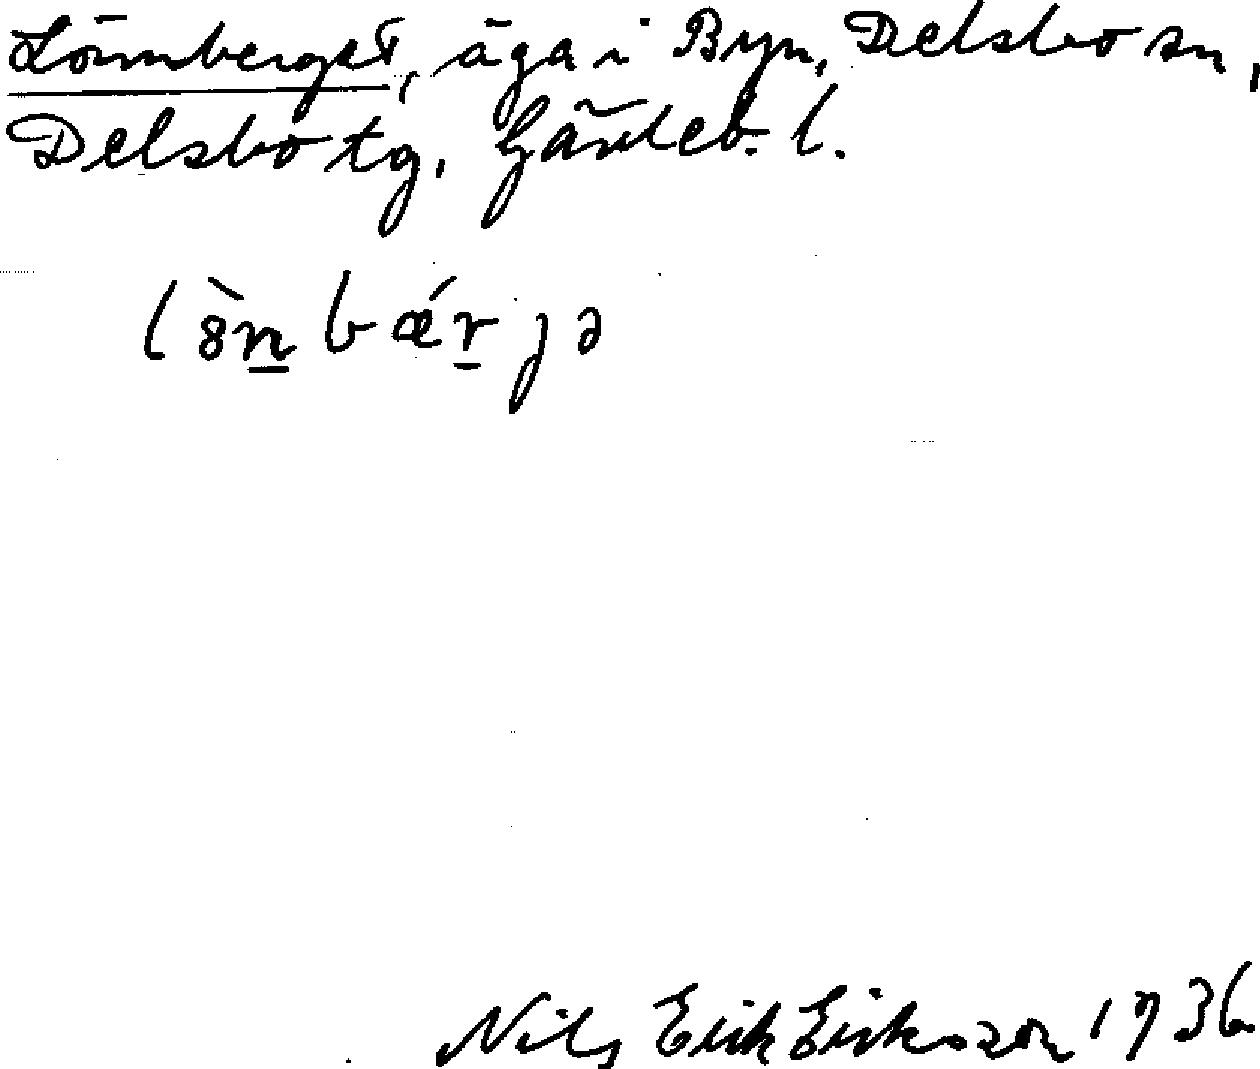 Lönnberget, äga i Byn, Delsbo sn,
Delsbo tg, Gävleb. l.
lön̲bǽr̲jə
Nils Erik Eriksson 1936